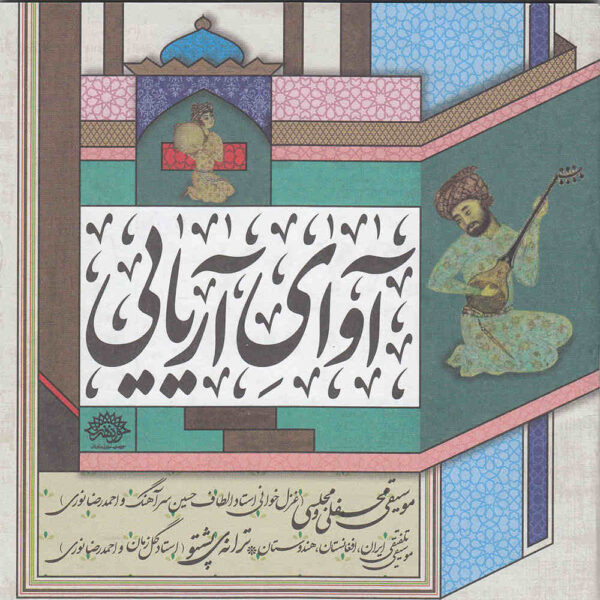 آوای آریایی
موسیقی محفلی و مجلسی (غزل خوانی استاد الطاف حسین سرآهنگ و احمد رضا نوری)
موسیقی تلفیقی ایران، افغانستان، هندوستان * ترانه‌ی پشتو (استاد گل زمان و احمد رضا نوری)